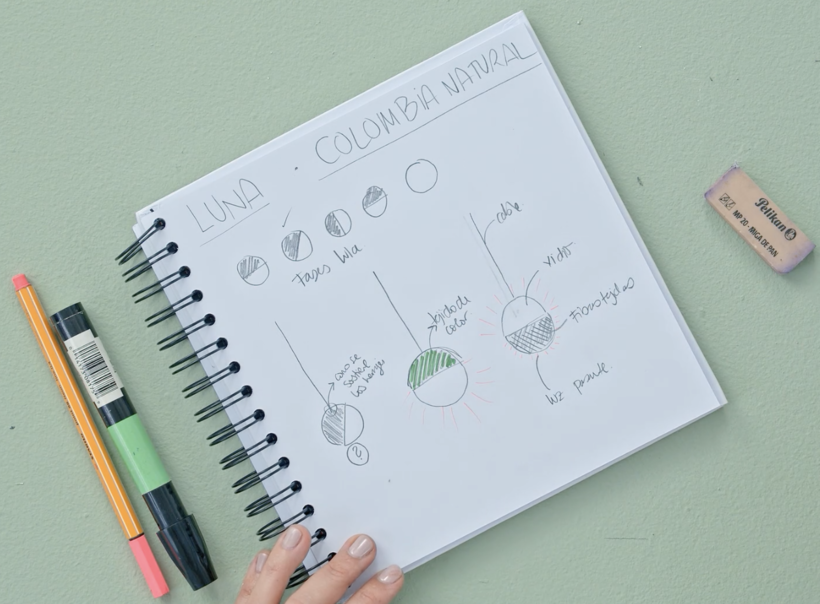 LUNA . COLOMBIA NATURAL
Fases luna
cable.
vidrio
Fibras tejidas
luz puente.
tejido de
color
como se
sostiene
los
?
Pelikan
MP 20 - MIGA DE PAN